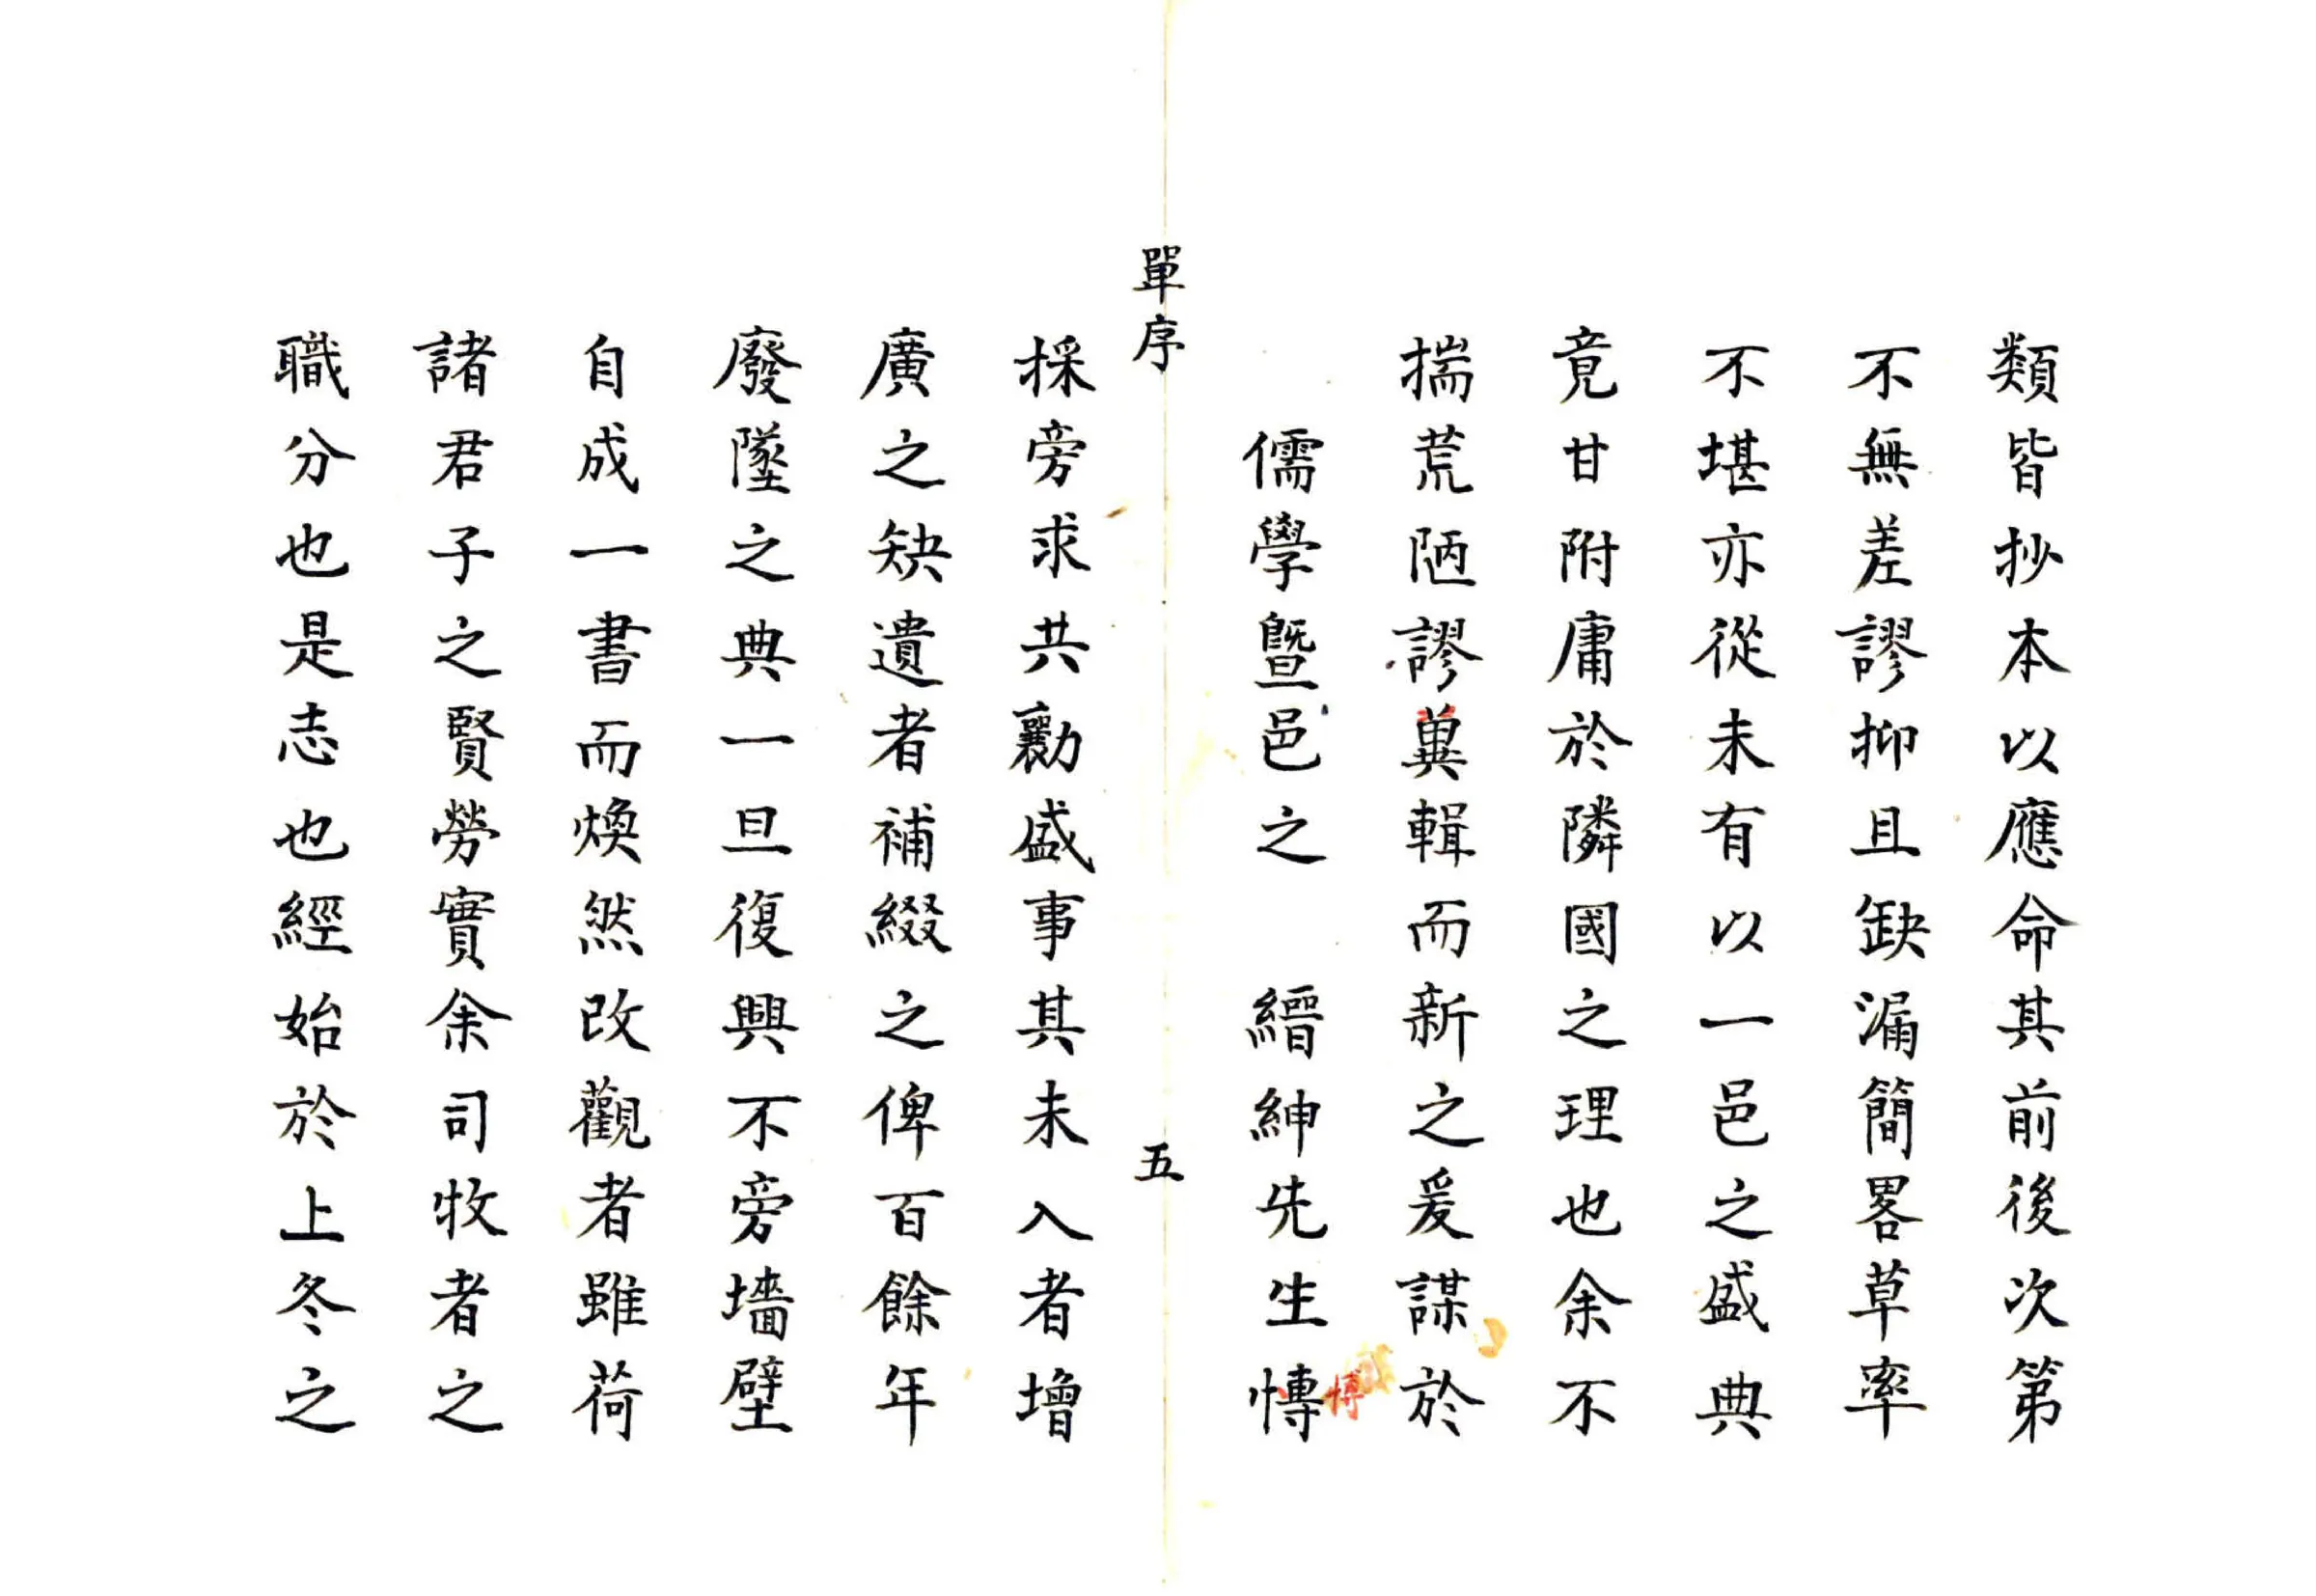 類皆抄本以應命其前後次第
不無差謬抑且缺漏簡畧草率
不堪亦從未有以一邑之盛典
竟甘附庸於隣國之理也余不
揣荒陋謬兾輯而新之爰謀於
儒學暨邑之　縉紳先生慱
博
單序
五
採旁求共勷盛事其未入者增
廣之缺遺者補綴之俾百餘年
廢墜之典一旦復興不旁墻壁
自成一書而煥然改觀者雖荷
諸君子之賢勞實余司牧者之
職分也是志也經始於上冬之